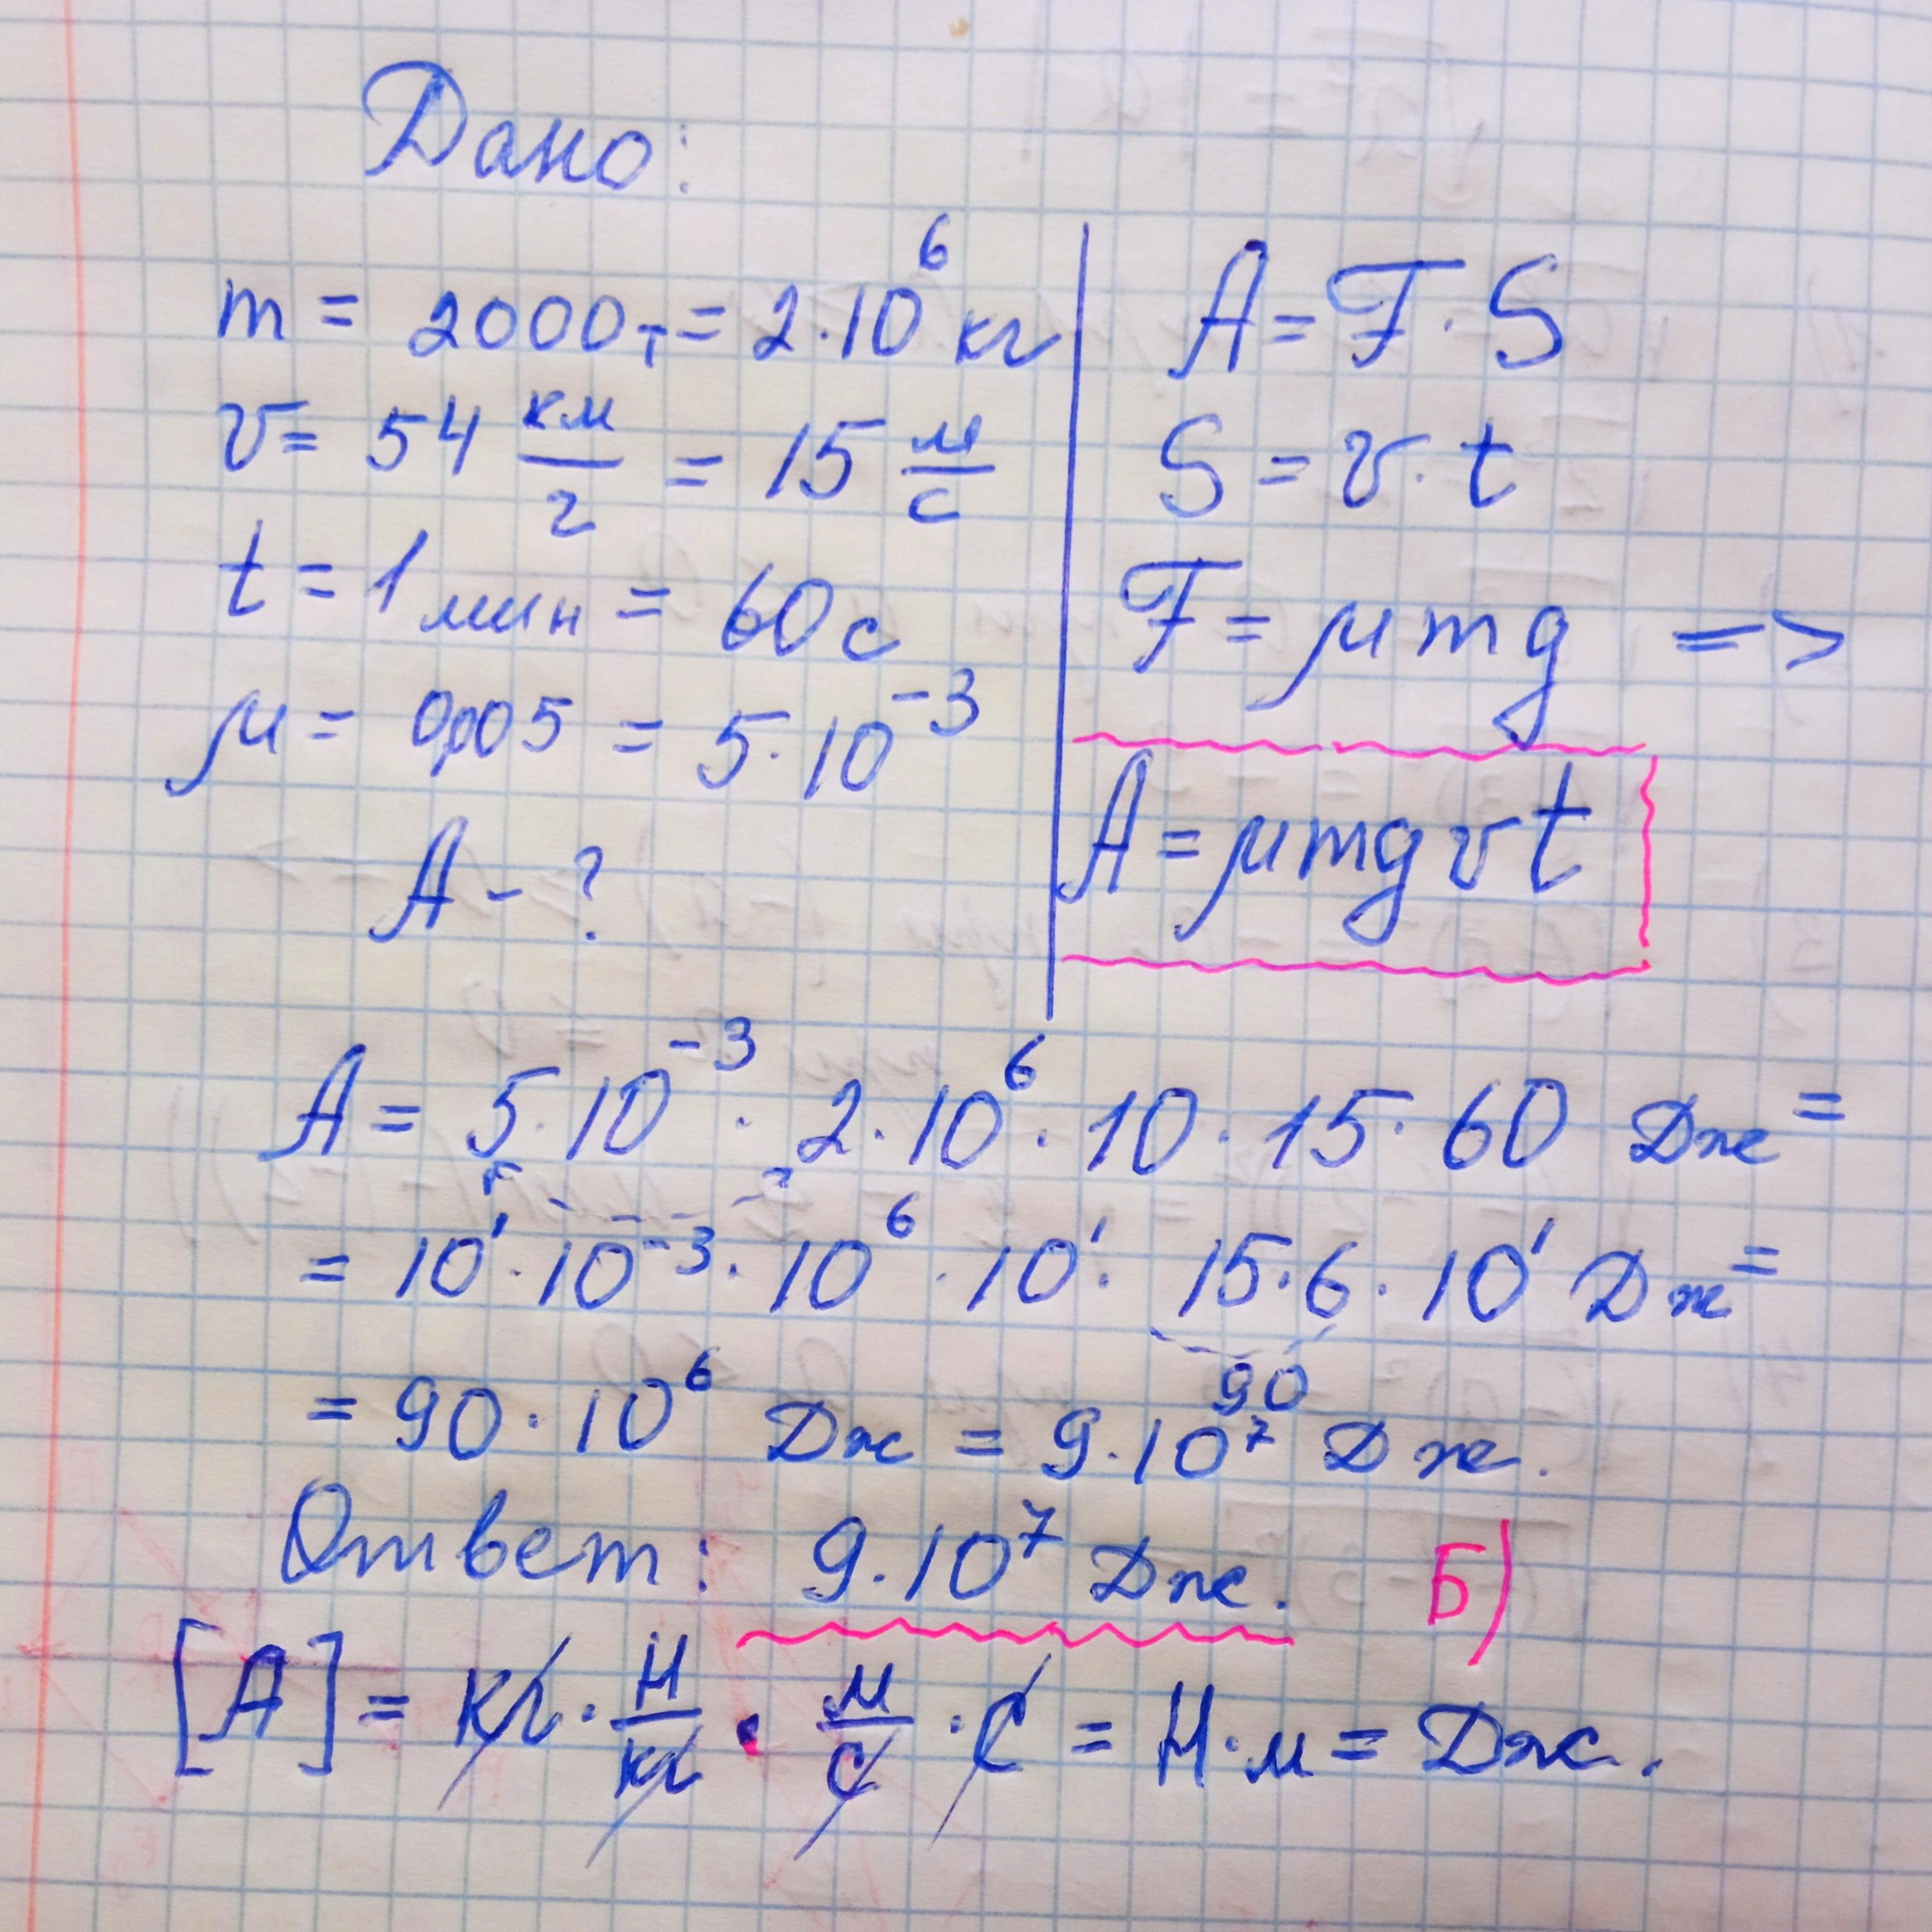 Дано:
m = 2000т = 2·10⁶ кг
v = 54 км/г = 15 м/с
t = 1 мин = 60 с
μ = 0,005 = 5·10⁻³
A - ?
A = F·S
S = v·t
F = μmg =>
A = μmgvt
A = 5·10⁻³ · 2·10⁶ · 10 · 15 · 60 Дж =
= 10¹ · 10⁻³ · 10⁶ · 10¹ · 15·6 · 10¹ Дж =
90
= 90 · 10⁶ Дж = 9·10⁷ Дж.
Ответ: 9·10⁷ Дж. Б)
[A] = кг · Н/кг · м/с · с = Н·м = Дж.